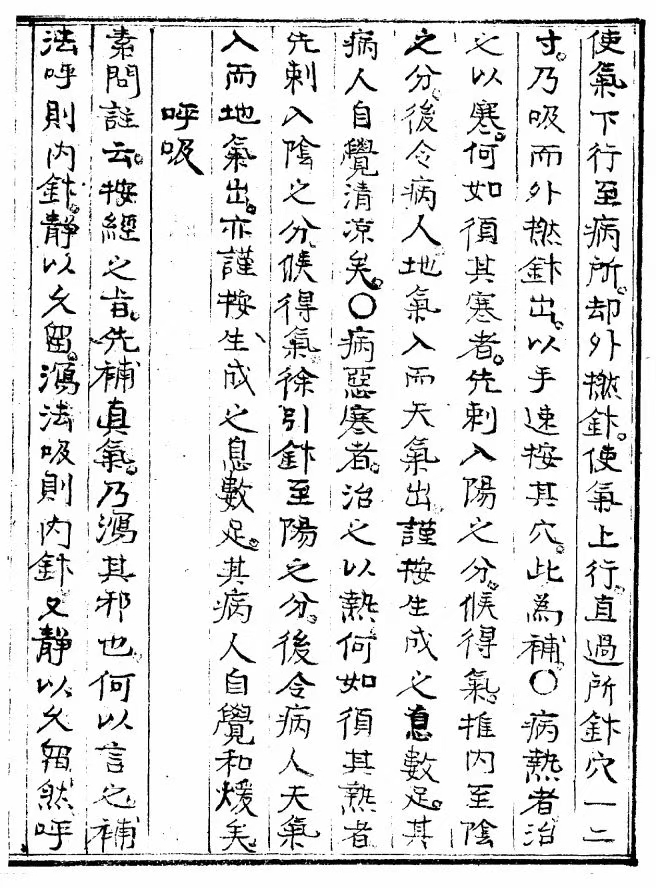 使氣下行至病所。却外撚針。使氣上行。直過所針穴一二
寸。乃吸而外撚針出。以手速按其穴。此為補。○病熱者治
之以寒。何如須其寒者。先刺入陽之分。候得氣。推内至陰
之分。後令病人地氣入而天氣出。謹按生成之息數足。其
病人自覺清凉矣。○病惡寒者。治之以熱何如須其熱者
先刺入陰之分。候得氣徐引針至陽之分。後令病人天氣
入而地氣出。亦謹按生成之息數足。其病人自覺和煖矣。
呼吸
素問註云。按經之旨。先補真氣。乃瀉其邪也。何以言之。補
法呼則内針。靜以久留。瀉法吸則内針又靜以久留然呼